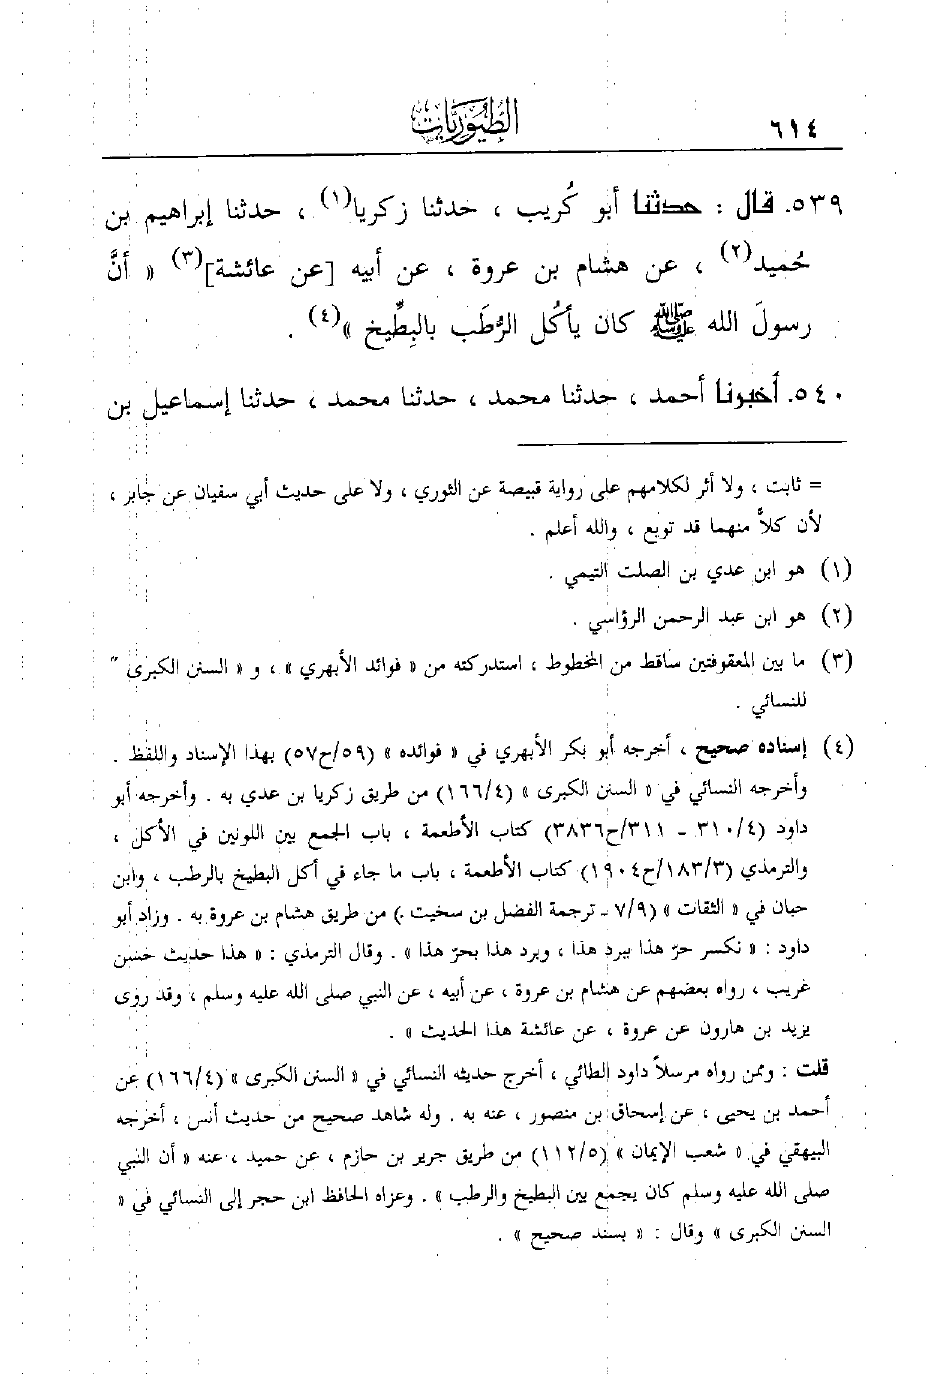 ٦١٤
الطُّيُورِيَّات
٥٣٩. قال : حدثنا أبو كُريب ، حدثنا زكريا(١) ، حدثنا إبراهيم بن
حُميد(٢) ، عن هشام بن عروة ، عن أبيه [عن عائشة](٣) « أنَّ
رسولَ الله ﷺ كان يأكُل الرُّطَب بالبِطِّيخ »(٤) .
٥٤٠. أخبرنا أحمد ، حدثنا محمد ، حدثنا محمد ، حدثنا إسماعيل بن
= ثابت ، ولا أثر لكلامهم على رواية قبيصة عن الثوري ، ولا على حديث أبي سفيان عن جابر ،
لأن كلاًّ منهما قد توبع ، والله أعلم .
(١) هو ابن عدي بن الصلت التيمي .
(٢) هو ابن عبد الرحمن الرؤاسي .
(٣) ما بين المعقوفتين ساقط من المخطوط ، استدركته من « فوائد الأبهري » ، و « السنن الكبرى "
للنسائي .
(٤) إسناده صحيح ، أخرجه أبو بكر الأبهري في « فوائده » (٥٩/ح٥٧) بهذا الإسناد واللفظ .
وأخرجه النسائي في « السنن الكبرى » (١٦٦/٤) من طريق زكريا بن عدي به . وأخرجه أبو
داود (٣١٠/٤ - ٣١١/ح٣٨٣٦) كتاب الأطعمة ، باب الجمع بين اللونين في الأكل ،
والترمذي (١٨٣/٣/ح١٩٠٤) كتاب الأطعمة ، باب ما جاء في أكل البطيخ بالرطب ، وابن
حبان في « الثقات » (٧/٩ - ترجمة الفضل بن سخيت .) من طريق هشام بن عروة به . وزاد أبو
داود : « نكسر حرّ هذا ببرد هذا ، وبرد هذا بحرّ هذا » . وقال الترمذي : « هذا حديث حسن
غريب ، رواه بعضهم عن هشام بن عروة ، عن أبيه ، عن النبي صلى الله عليه وسلم ، وقد روى
يزيد بن هارون عن عروة ، عن عائشة هذا الحديث » .
قلت : وممن رواه مرسلاً داود الطائي ، أخرج حديثه النسائي في « السنن الكبرى » (١٦٦/٤) عن
أحمد بن يحيى ، عن إسحاق بن منصور ، عنه به . وله شاهد صحيح من حديث أنس ، أخرجه
البيهقي في « شعب الإيمان » (١١٢/٥) من طريق جرير بن حازم ، عن حميد ، عنه « أن النبي
صلى الله عليه وسلم كان يجمع بين البطيخ والرطب » . وعزاه الحافظ ابن حجر إلى النسائي في «
السنن الكبرى » وقال : « بسند صحيح » .